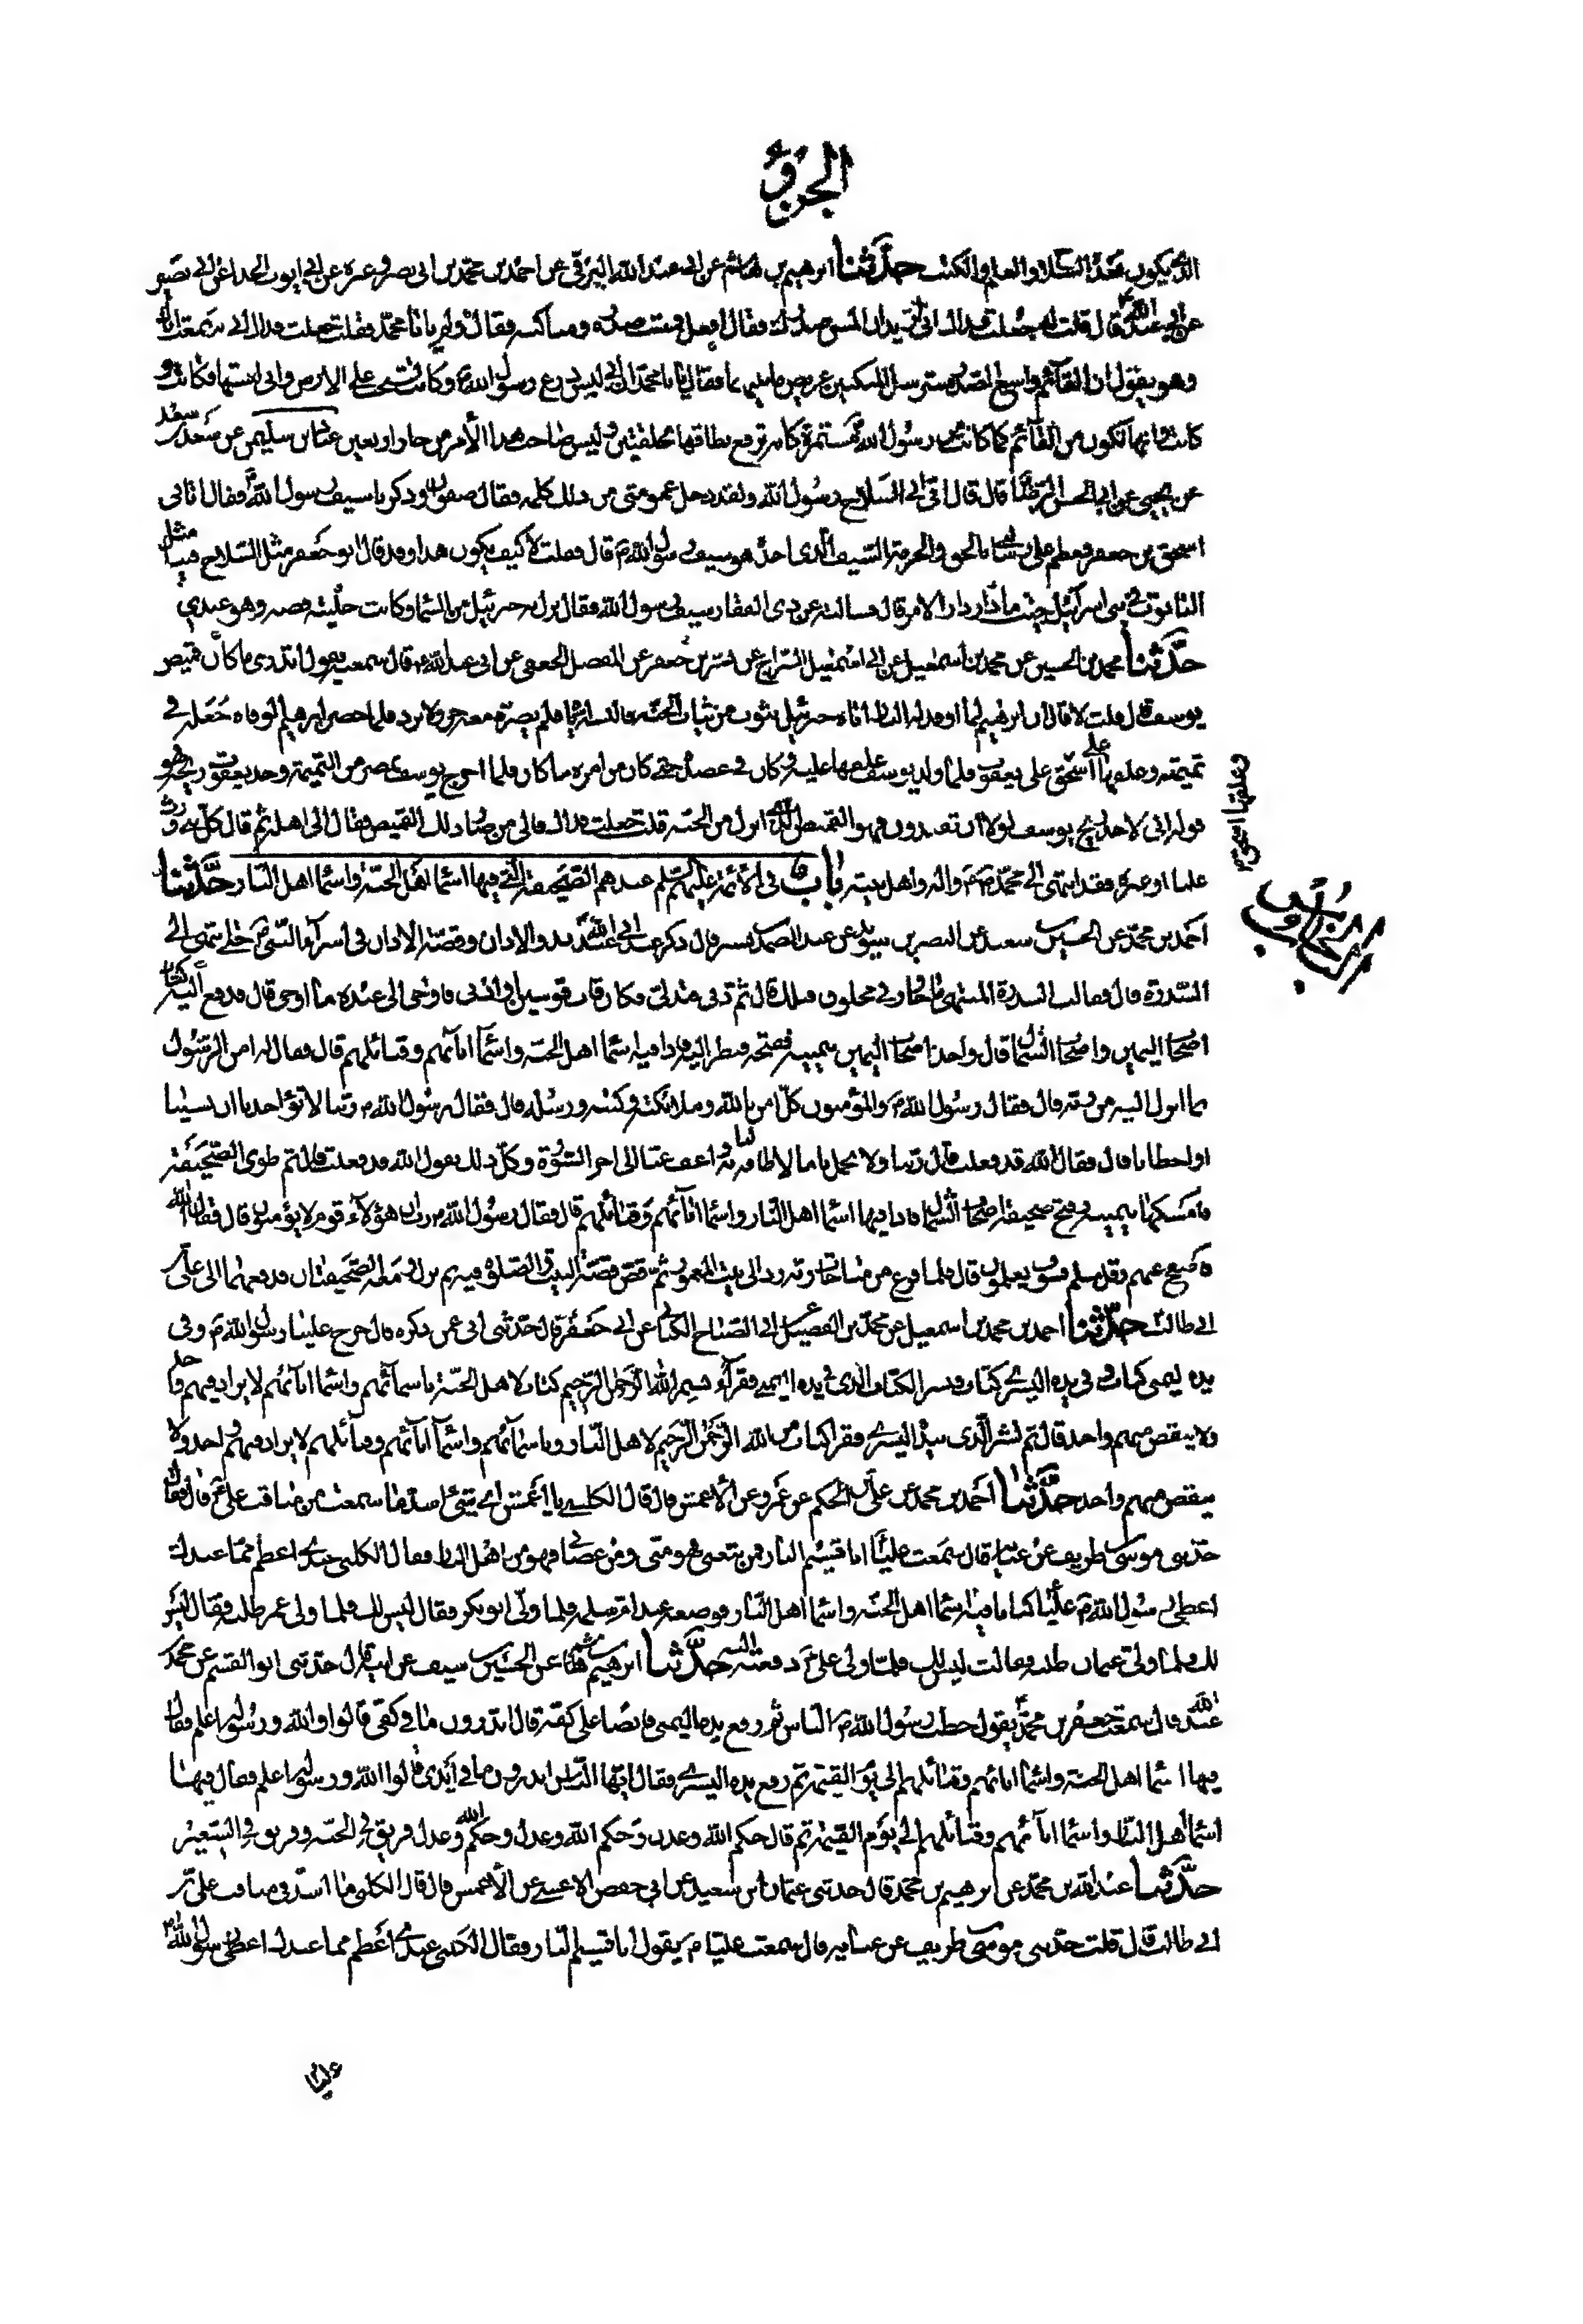 الجزؤ
الذى يكون عنده السلاح والعلم والكتب حدّثنا ابرهيم بن هاشم عن ابى عبد الله البرقى عن احمد بن محمد بن ابى نصر وغيره عن ابى ايوب الحذاء عن ابى بصير
عن ابى عبد الله قال قلت له جعلت فداك انى اريد ان المس صدرك فقال افعل فمسست صدره ومناكبه فقال ولم يا ابا محمد فقلت جعلت فداك انى سمعت اباك
وهو يقول ان القائم واسع الصدر مسترسل المنكبين عريض ما بينهما فقال يا ابا محمد ان ابى لبس درع رسول الله وكانت تسحب على الارض وانى لبستها فكانت و
كانت وانها تكون من القائم كما كانت من رسول الله مشمرة كانه ترفع نطاقها بحلقتين وليس صاحب هذا الامر من جاز اربعين عباد بن سليمن عن سعد بن سعد
عن ابى الحسن الرضا قال قال اتى ابى السلاح رسول الله ولقد دخل عمومتى من ذلك كلمه فقال صفوان وذكرنا سيف رسول الله فقال اتانى
اسحق بن جعفر فعظم على بالحق والحرمة السيف الذى اخذ هو سيف رسول الله قال فقلت لا كيف يكون هذا وقد قال ابو جعفر مثل السلاح فينا مثل
التابوت فى بنى اسرائيل حيث ما دار دار الامر قال فسالته عن ذى الفقار سيف رسول الله فقال نزل به جبرئيل من السماء وكانت حليته فضة وهو عندى
حدّثنا محمد بن الحسين عن محمد بن اسمعيل عن ابى اسمعيل السراج عن بشر بن جعفر عن المفضل الجعفى عن ابى عبد الله قال سمعته يقول اتدرى ما كان قميص
يوسف قال قلت لا قال ان ابرهيم لما اوقد له النار اتاه جبرئيل بثوب من ثياب الجنة فالبسه اياه فلم يضره معه حر ولا برد فلما حضر ابرهيم الوفاة جعله فى
تميمة وعلقها على اسحق على يعقوب فلما ولد يوسف علقها عليه فكان فى عضده حتى كان من امره ما كان فلما اخرج يوسف بمصر من التميمة وجد يعقوب ريحه وهو
وعلقها اسحق
قوله انى لاجد ريح يوسف لولا ان تفندون فهو القميص الذى انزل من الجنة قلت جعلت فداك فالى من صار ذلك القميص فقال الى اهله ثم قال كل نبى ورث
علما او غيره فقد انتهى الى محمد واله واهل بيته باب فى الائمة عليهم السلم عندهم الصحيفة التى فيها اسماء اهل الجنة واسماء اهل النار حدّثنا
احمد بن محمد عن الحسين بن سعيد عن النضر بن سويد عن عبد الصمد بن بشير قال ذكر عند ابى عبد الله بدو الاذان وقصة الاذان فى اسراء النبى حتى انتهى الى
السدرة قال فقالت السدرة المنتهى ما جازنى مخلوق قبلك قال ثم دنى فتدلى فكان قاب قوسين او ادنى فاوحى الى عبده ما اوحى قال فدفع اليه كتاب
اصحاب اليمين واصحاب الشمال قال واخذ كتاب اصحاب اليمين بيمينه ففتحه فنظر اليه فاذا فيه اسماء اهل الجنة واسماء ابائهم وقبائلهم قال فقال له امن الرسول
بما انزل اليه من ربه قال فقال رسول الله والمؤمنون كل امن بالله وملائكته وكتبه ورسله قال فقال رسول الله ربنا لا تؤاخذنا ان نسينا
او اخطانا قال فقال الله قد فعلت قال ربنا ولا تحملنا ما لا طاقة لنا به واعف عنا الى اخر السورة وكل ذلك يقول الله قد فعلت قال ثم طوى الصحيفة
فامسكها بيمينه وفتح صحيفة اصحاب الشمال فاذا فيها اسماء اهل النار واسماء ابائهم وقبائلهم قال فقال رسول الله رب ان هؤلاء قوم لا يؤمنون قال فقال الله
فاصفح عنهم وقل سلم فسوف يعلمون قال فلما فرغ من مناجاته ربه رد الى بيت المعمور ثم قص قصة البيت والصلوة فيه ثم نزل ومعه الصحيفتان فدفعهما الى على بن
ابى طالب حدّثنا احمد بن محمد بن اسمعيل عن محمد بن الفضيل عن ابى الصباح الكنانى عن ابى جعفر قال حدثنى ابى عمن ذكره قال خرج علينا رسول الله وفى
يده اليمنى كتاب وفى يده اليسرى كتاب فنشر الكتاب الذى فى يده اليمنى فقرأ بسم الله الرحمن الرحيم كتاب لاهل الجنة باسمائهم واسماء ابائهم لا يزاد فيهم واحد
ولا ينقص منهم واحد قال ثم نشر الذى بيده اليسرى فقرا كتاب من الله الرحمن الرحيم لاهل النار باسمائهم واسماء ابائهم وقبائلهم لا يزاد فيهم واحد ولا
ينقص منهم واحد حدّثنا احمد بن محمد عن على بن الحكم عن عمرو عن الاعمش قال قال الكلبى يا اعمش اى شئ اشد ما سمعت من مناقب على قال فقال
حدثنى موسى بن طريف عن عباية قال سمعت عليا انا قسيم النار فمن تبعنى فهو منى ومن عصانى فهو من اهل النار فقال الكلبى عندى اعظم مما عندك
اعطى رسول الله عليا كتابا فيه اسماء اهل الجنة واسماء اهل النار فوضعه عند ام سلمه فلما ولى ابو بكر فقال ليس لك فلما ولى عمر طلبه فقال ليس
لك فلما ولى عثمان طلبه فقالت ليس لك فلما ولى على دفعته اليه حدّثنا ابرهيم بن هاشم عن الحسين بن سيف عن ابيه قال حدثنى ابو القسم عن محمد بن
عبد الله قال سمعت جعفر بن محمد يقول خطب رسول الله الناس ثم رفع يده اليمنى قابضا على كفه قال اتدرون ما فى كفى قالوا الله ورسوله اعلم فقال
فيها اسماء اهل الجنة واسماء ابائهم وقبائلهم الى يوم القيمة ثم رفع يده اليسرى فقال ايها الناس اتدرون ما فى يدى قالوا الله ورسوله اعلم فقال فيها
اسماء اهل النار واسماء ابائهم وقبائلهم الى يوم القيمة ثم قال حكم الله وعدل وحكم الله وعدل وحكم الله وعدل فريق فى الجنة وفريق فى السعير
حدّثنا عبد الله بن محمد عن ابرهيم بن محمد قال حدثنى عثمان بن سعيد عن ابى حفص الاعشى عن الاعمش قال قال الكلبى ما اشد فى مناقب على بن
ابى طالب قال قلت حدثنى موسى بن طريف عن عباية قال سمعت عليا يقول انا قسيم النار فقال الكلبى عندى اعظم مما عندك اعطى رسول الله
عليا